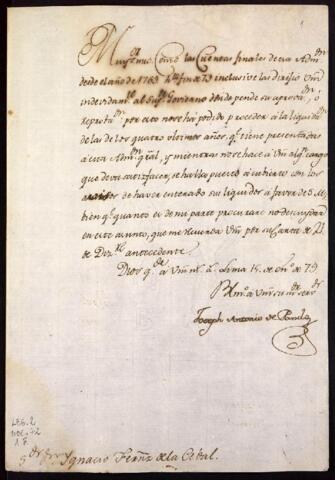 Muy S.r mio: Como las Cuentas finales de esa Adm.on
desde el año de 1765 hta. fin de 73 inclusive las dirixio Vm
al Sup.or Govierno donde pende su aprova.on, ó
por esto no se há podido proceder á la liquida.on
de las de los quatro ultimos años, q.e tiene presentadas
á esta Adm.on gral, y mientras no se hace á Vm algun cargo
que deva satisfacer, se halla puesto á cubierto con los
de haver enterado su liquido á favor de S.M.
bien q.e quanto es de mi parte procurare no descuydar
en este asunto, que me recuerda Vm por su Carta de 21
de Diz.re antecedente.
Dios g.de á Vm m.s a.s Lima 15 de En.o de 79
B.l m.o á Vm su serv.or
Joseph Antonio de Pando
LEG. 2
DOC. 72
1 F.
S.or D.n Ignacio Ferñz de la Cebal.